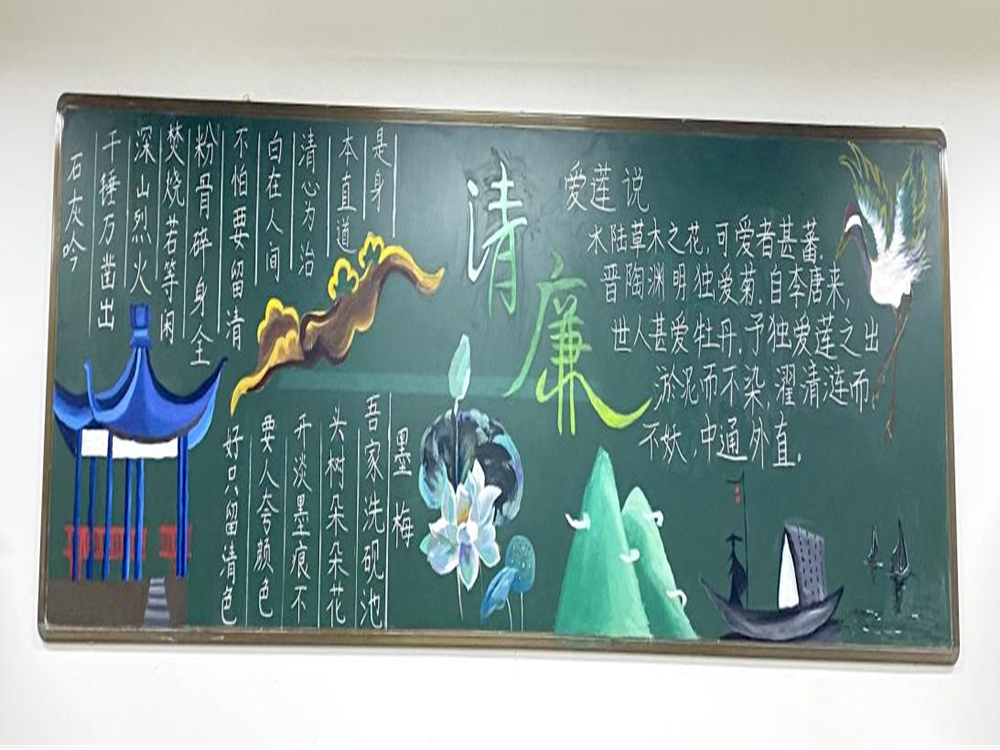 石灰吟
千锤万凿出
深山烈火
焚烧若等闲
粉骨碎身全
不怕要留清
白在人间
清心为治
本直道
是身
墨梅
吾家洗砚池
头树朵朵花
开淡墨痕不
要人夸颜色
好只留清色
清廉
爱莲说
水陆草木之花,可爱者甚蕃.
晋陶渊明独爱菊.自李唐来,
世人甚爱牡丹.予独爱莲之出
淤泥而不染,濯清涟而
不妖,中通外直.